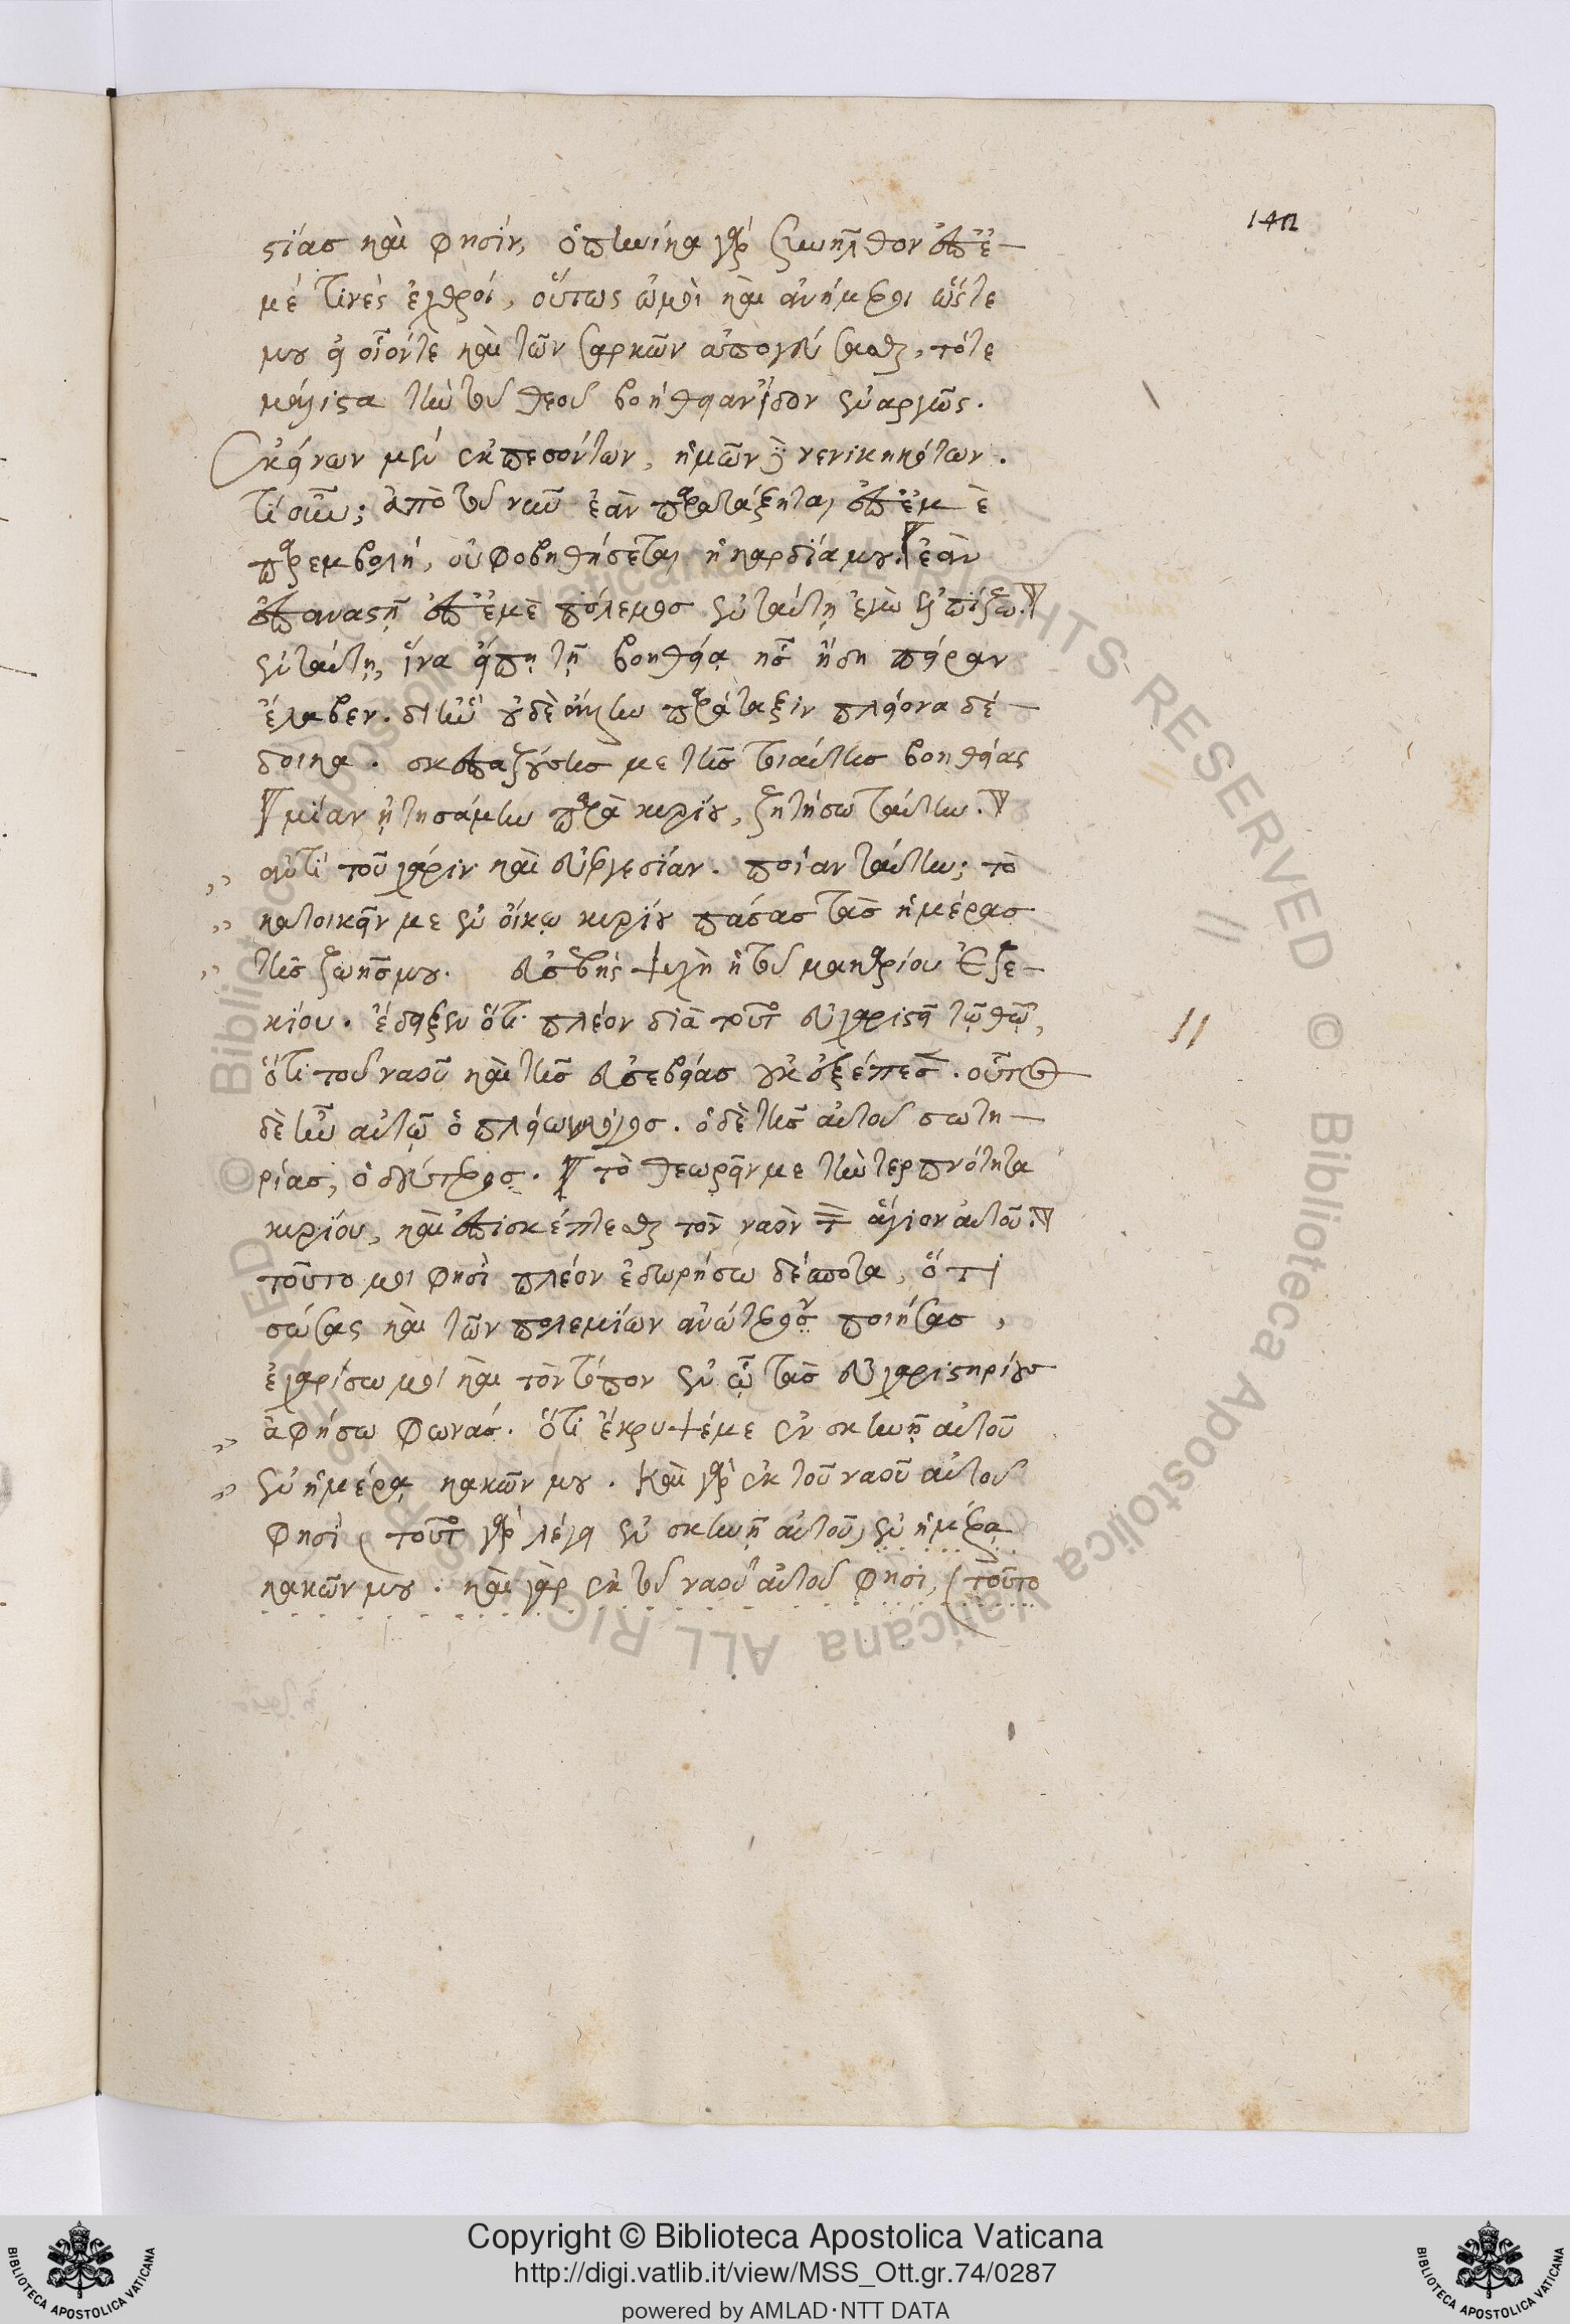 142
στίας καὶ φησὶν, ὁπηνίκα γὰρ συνῆλθον ἐπ' ἐ-
μέ τινες ἐχθροί, οὕτως ὠμοὶ καὶ ἀνήμεροι ὥστε
μου εἰ οἷόντε καὶ τῶν σαρκῶν ἀπογεύσασθαι, τότε
μάλιστα τὴν τοῦ θεοῦ βοήθειαν ἴδον ἐναργῶς.
ἐκείνων μὲν ἐκπεσόντων, ἡμῶν δὲ νενικηκότων.
τί οὖν; ἀπὸ τοῦ νῦν ἐὰν παρατάξηται ἐπ' ἐμὲ
παρεμβολή, οὐ φοβηθήσεται ἡ καρδία μου. ἐὰν
ἐπαναστῇ ἐπ' ἐμὲ πόλεμος ἐν ταύτῃ ἐγὼ ἐλπίζω.
ἐν ταύτῃ, ἵνα εἴπῃ τῇ βοηθείᾳ ἧς ἤδη πεῖραν
ἔλαβεν. δι' ἣν οὐδὲ ἄλλην παράταξιν πλείονα δέ-
δοικα. σκεπαζούσης με τῆς τοιαύτης βοηθείας
μίαν ᾐτησάμην παρὰ κυρίου, ζητήσω ταύτην.
ἀντὶ τοῦ χάριν καὶ εὐεργεσίαν. ποίαν ταύτην; τὸ
κατοικεῖν με ἐν οἴκῳ κυρίου πάσας τὰς ἡμέρας
τῆς ζωῆς μου. εὐσεβὴς ψυχὴ ἡ τοῦ μακαρίου Ἐζε-
κίου. ἔδειξεν ὅτι πλέον διὰ τοῦτο εὐχαριστεῖ τῷ θεῷ,
ὅτι τοῦ ναοῦ καὶ τῆς εὐσεβείας οὐκ ἐξέπεσε. οὗτος
δὲ ἦν αὐτῷ ὁ πλείων λόγος. ὁ δὲ τῆς αὐτοῦ σωτη-
ρίας, ὁ δεύτερος. τὸ θεωρεῖν με τὴν τερπνότητα
κυρίου, καὶ ἐπισκέπτεσθαι τὸν ναὸν τὸν ἅγιον αὐτοῦ.
τοῦτο μοι φησὶ πλέον ἐδωρήσω δέσποτα, ὅτι
σώσας καὶ τῶν πολεμίων ἀνώτερον ποιήσας,
ἐχαρίσω μοι καὶ τὸν τόπον ἐν ᾧ τὰς εὐχαριστηρίους
ἀφήσω φωνάς. ὅτι ἔκρυψέ με ἐν σκηνῇ αὐτοῦ
ἐν ἡμέρᾳ κακῶν μου. καὶ γὰρ ἐκ τοῦ ναοῦ αὐτοῦ
φησὶ (τοῦτο γὰρ λέγει ἐν σκηνῇ αὐτοῦ) ἐν ἡμέρᾳ
κακῶν μου. καὶ γὰρ ἐκ τοῦ ναοῦ αὐτοῦ φησὶ, (τοῦτο
Copyright © Biblioteca Apostolica Vaticana
http://digi.vatlib.it/view/MSS_Ott.gr.74/0287
powered by AMLAD·NTT DATA